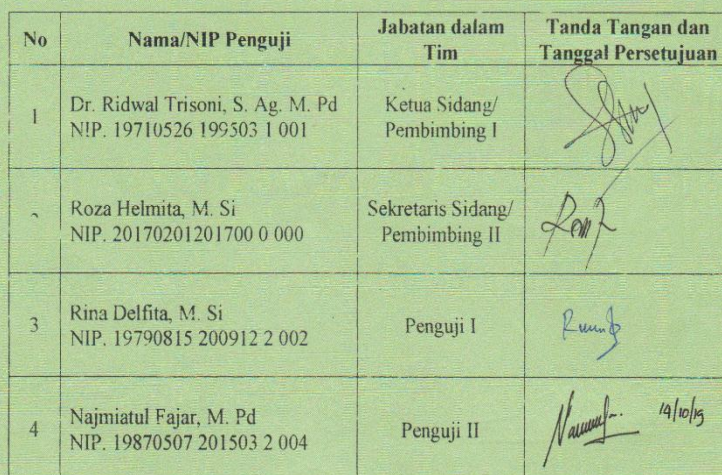 No
Nama/NIP Penguji
Jabatan dalam
Tim
Tanda Tangan dan
Tanggal Persetujuan
1
Dr. Ridwal Trisoni, S. Ag. M. Pd
NIP. 19710526 199503 1 001
Ketua Sidang/
Pembimbing I
Roza Helmita, M. Si
NIP. 20170201201700 0 000
Sekretaris Sidang/
Pembimbing II
3
Rina Delfita, M. Si
NIP. 19790815 200912 2 002
Penguji I
4
Najmiatul Fajar, M. Pd
NIP. 19870507 201503 2 004
Penguji II
14/10/19